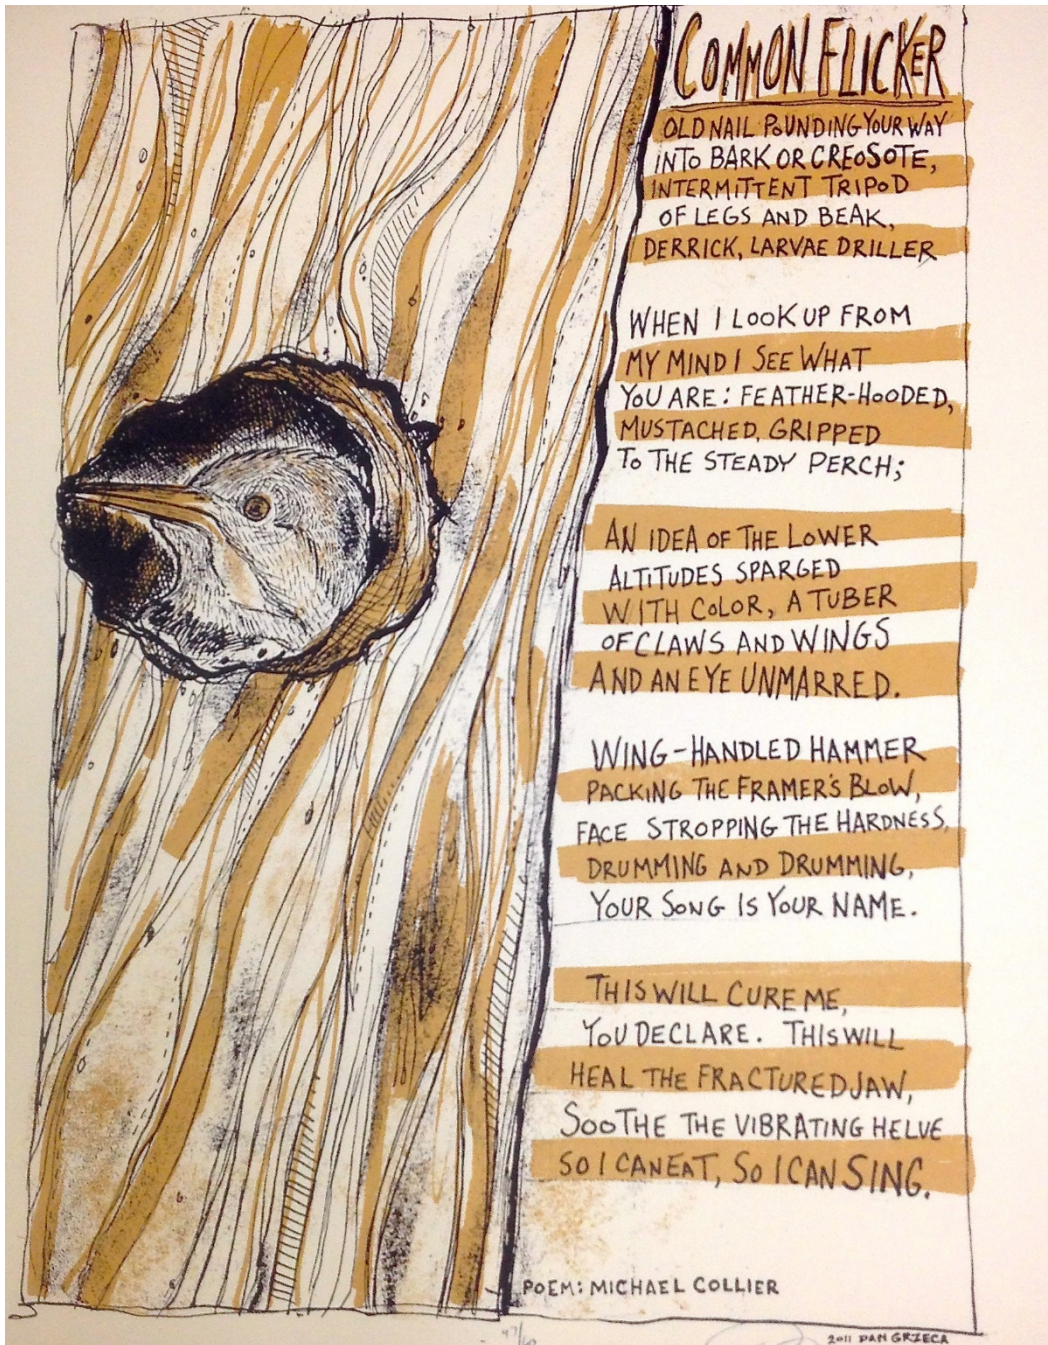 COMMON FLICKER
OLD NAIL POUNDING YOUR WAY
INTO BARK OR CREOSOTE,
INTERMITTENT TRIPOD
OF LEGS AND BEAK,
DERRICK, LARVAE DRILLER
WHEN I LOOK UP FROM
MY MIND I SEE WHAT
YOU ARE: FEATHER-HOODED,
MUSTACHED, GRIPPED
TO THE STEADY PERCH;
AN IDEA OF THE LOWER
ALTITUDES SPARGED
WITH COLOR, A TUBER
OF CLAWS AND WINGS
AND AN EYE UNMARRED.
WING-HANDLED HAMMER
PACKING THE FRAMER'S BLOW,
FACE STROPPING THE HARDNESS,
DRUMMING AND DRUMMING,
YOUR SONG IS YOUR NAME.
THIS WILL CURE ME,
YOU DECLARE. THIS WILL
HEAL THE FRACTURED JAW,
SOOTHE THE VIBRATING HELVE
SO I CAN EAT, SO I CAN SING.
POEM: MICHAEL COLLIER
2011 DAN GRZECA